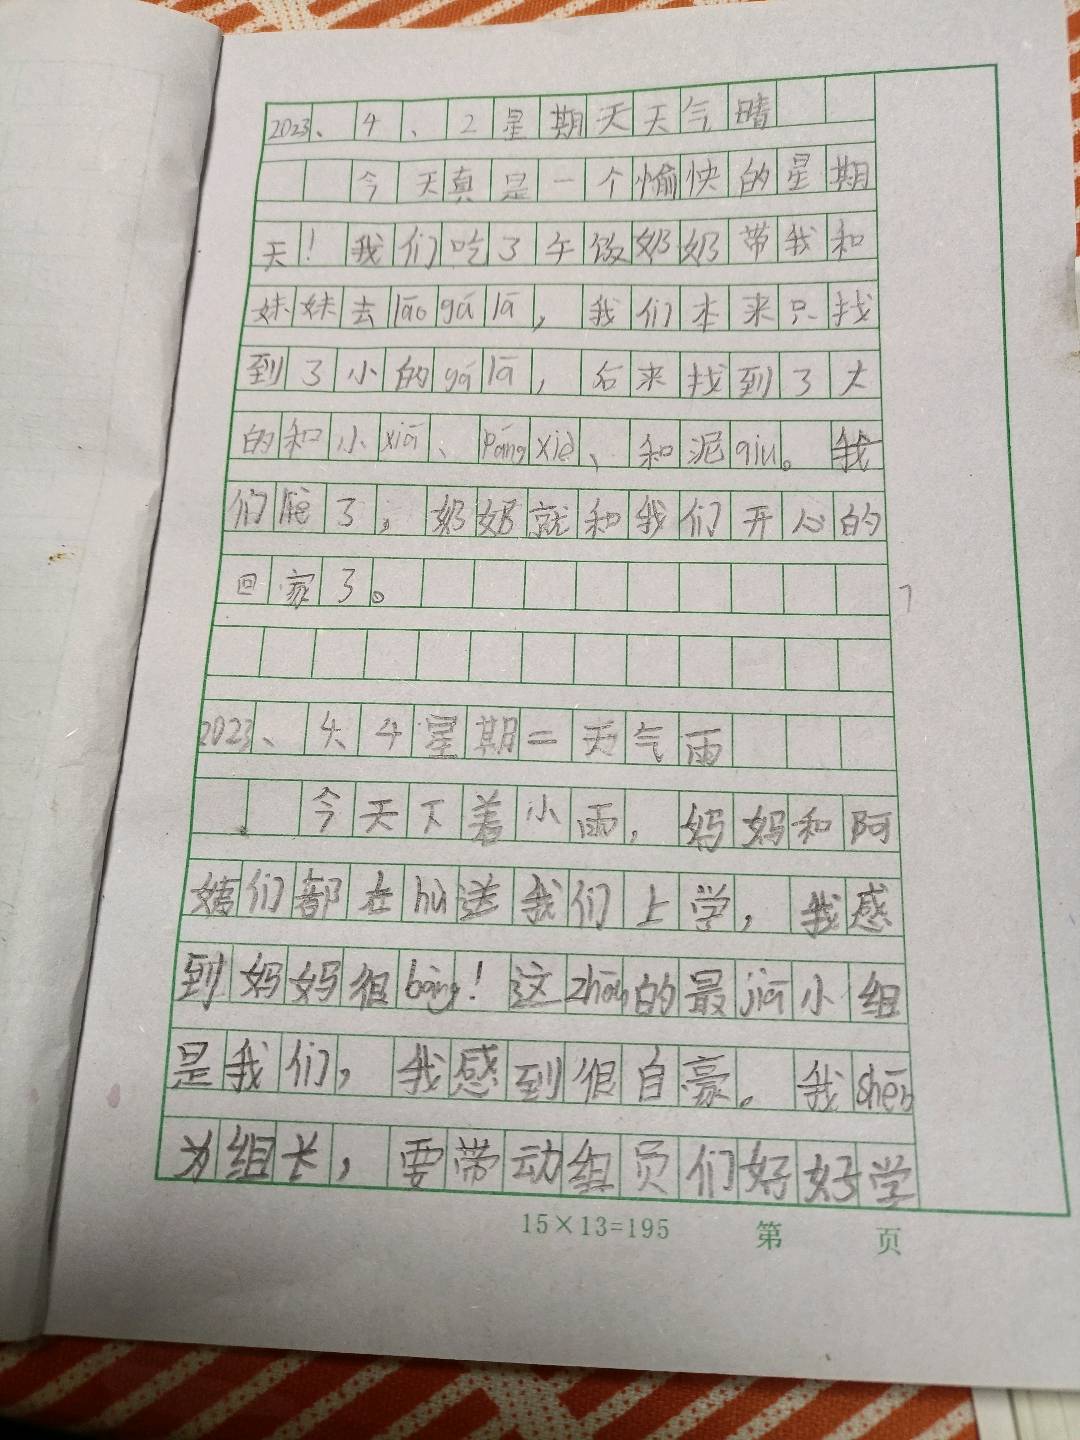 2023、4、2星期天天气晴
今天真是一个愉快的星期
天！我们吃了午饭奶奶带我和
妹妹去lāo gá lā，我们本来只找
到了小的gá lā，后来找到了大
的和小xiā、páng xiè、和泥qiu。我
们了，奶奶就和我们开心的
回家了。
2023、4、4星期二天气雨
今天下着小雨，妈妈和阿
姨们都在hù送我们上学，我感
到妈妈很bàng！这zhōu的最jiā小组
是我们，我感到很自豪。我shēn
为组长，要带动组员们好好学
15×13=195 第 页